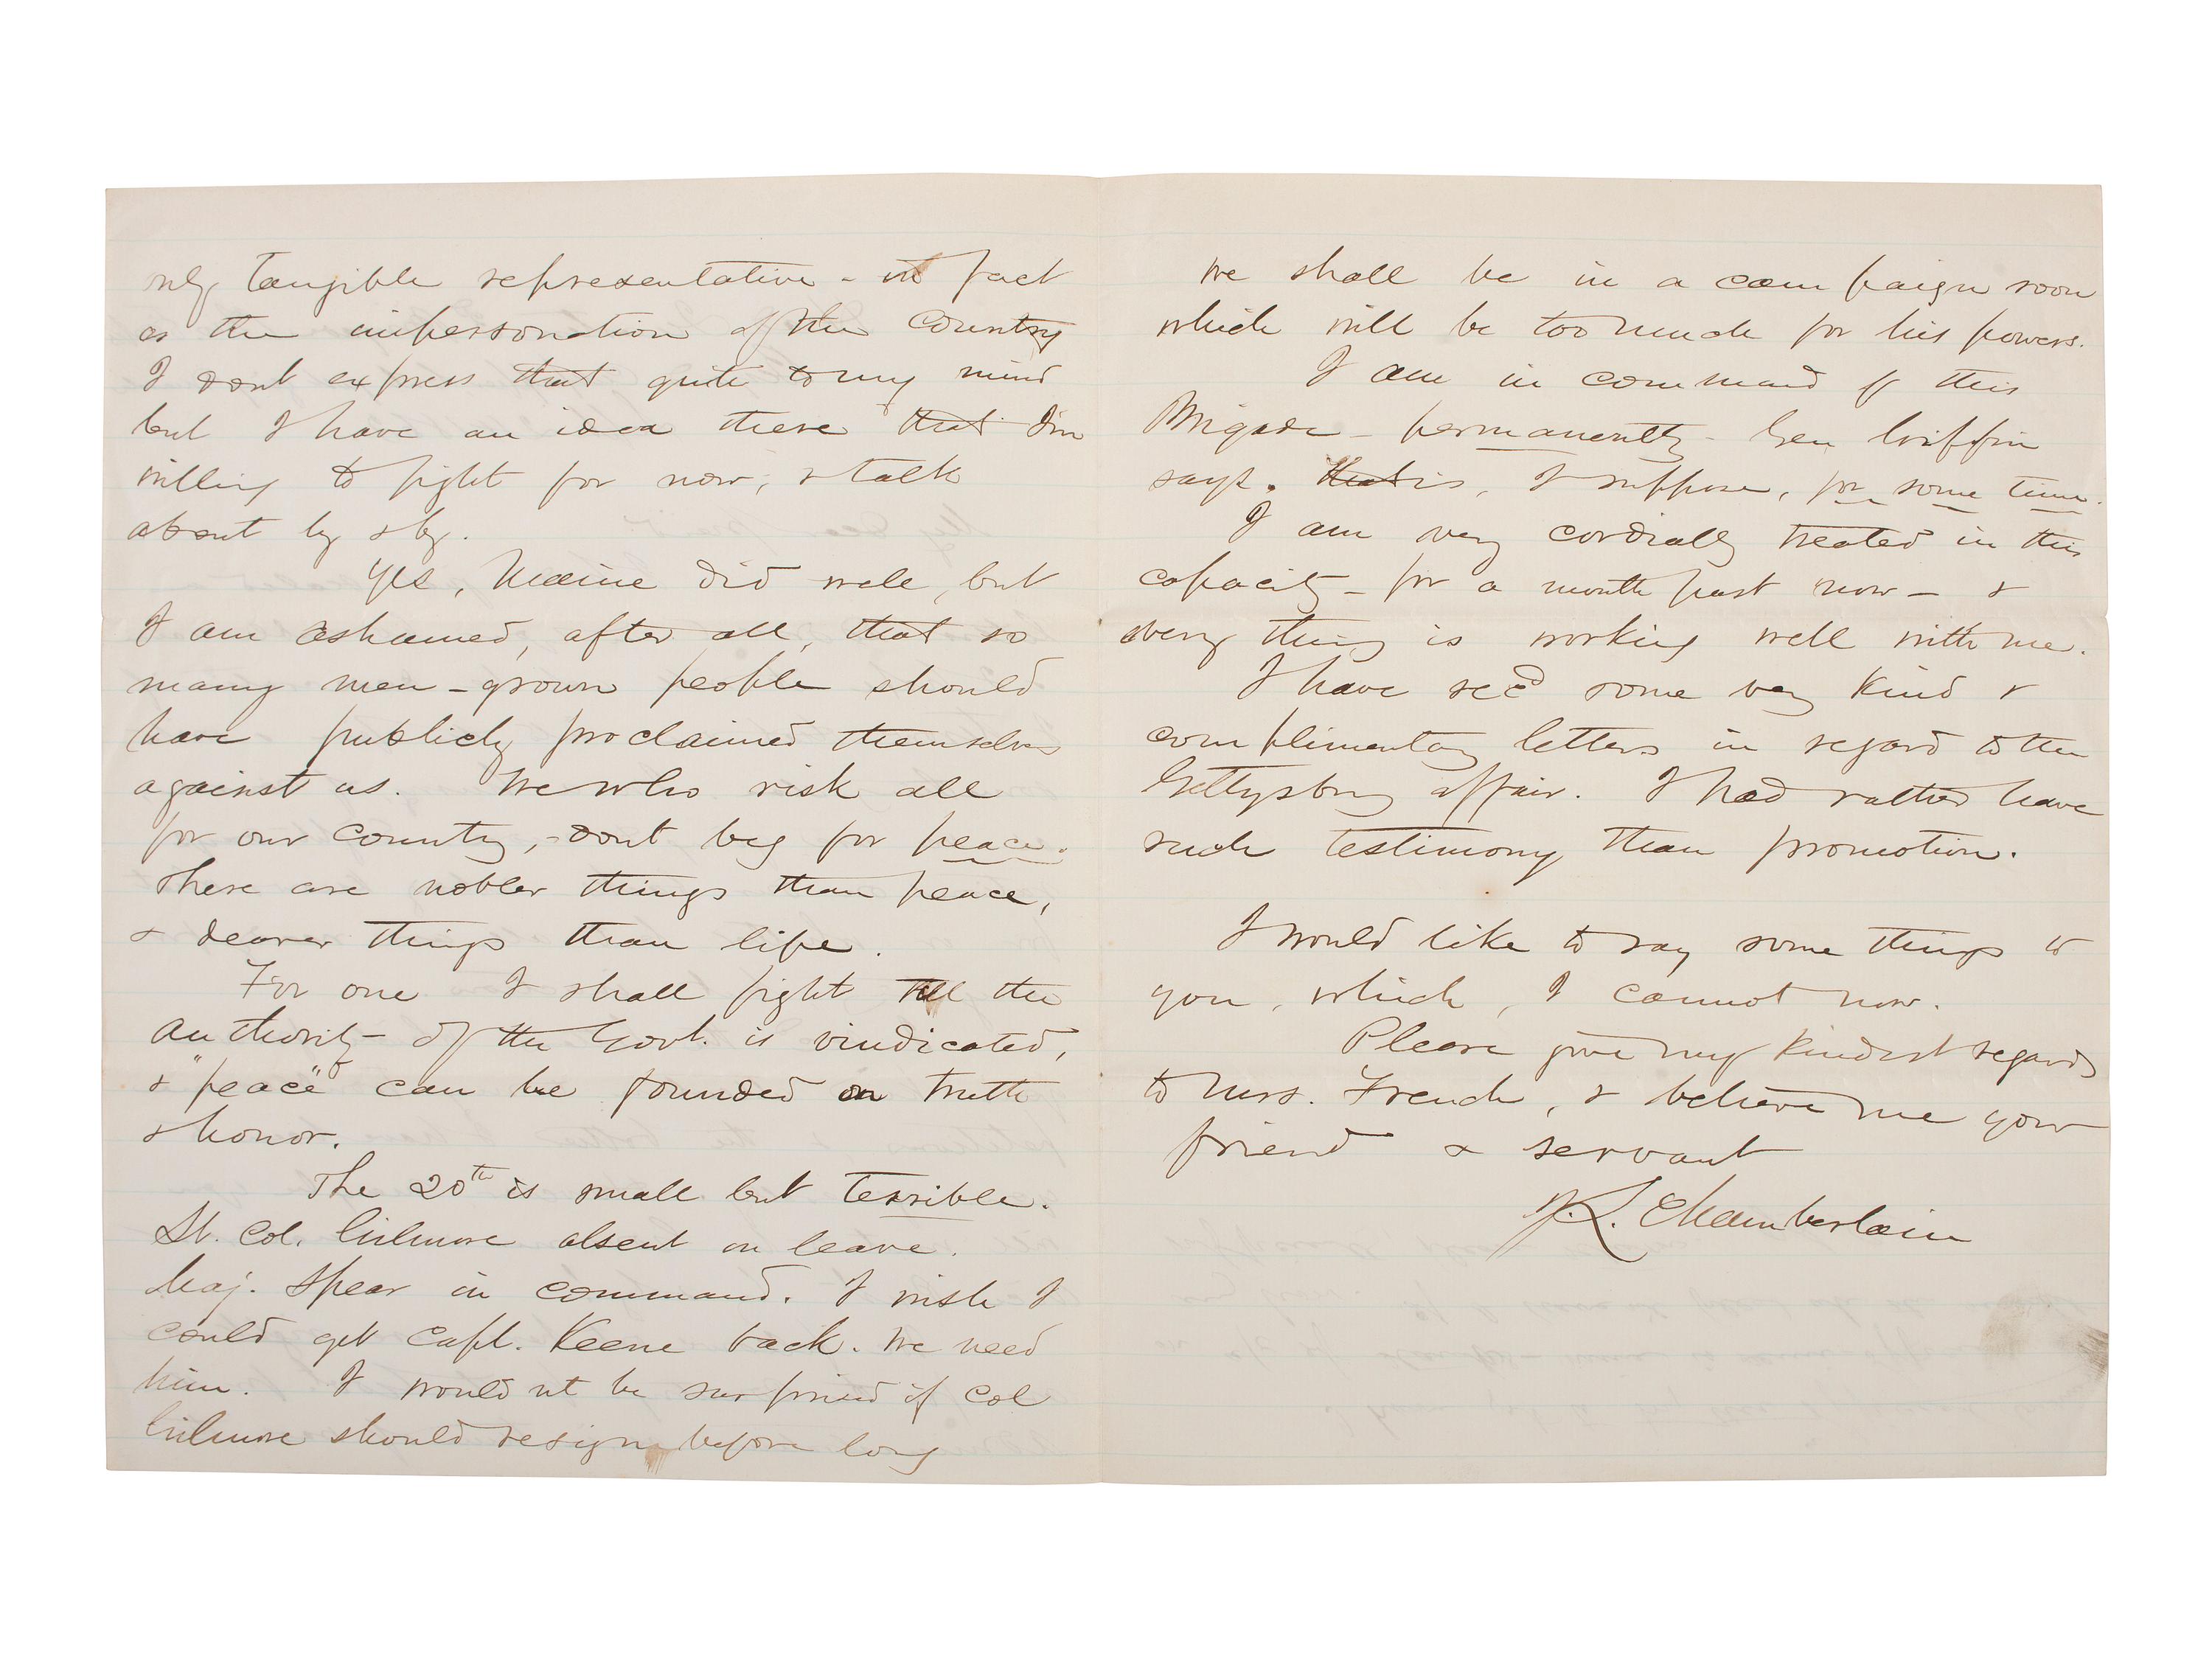 only tangible representative - in fact
as the impersonation of the Country
I dont express that quite to my mind
but I have an idea there that I'm
willing to fight for now, & talk
about by & by.
Yes, Maine did well, but
I am ashamed, after all, that so
many men - grown people should
have publicly proclaimed themselves
against us. We who risk all
for our country, dont beg for peace.
There are nobler things than peace,
& dearer things than life.
For one I shall fight till the
authority of the Govt. is vindicated,
& "peace" can be founded on truth
& honor.
The 20th is small but terrible.
Lt. Col. Gilmore absent on leave.
Maj. Spear in command. I wish I
could get Capt. Keene back. We need
him. I would nt be surprised if Col
Gilmore should resign before long
We shall be in a campaign soon
which will be too much for his powers.
I am in command of this
Brigade - permanently - Gen Griffin
says. That is, I suppose, for some time.
I am very cordially treated in this
capacity - for a month past now - &
every thing is working well with me.
I have rec'd some very kind &
complimentary letters in regard to the
Gettysburg affair. I had rather have
such testimony than promotion.
I would like to say some things to
you, which, I cannot now.
Please give my kindest regards
to Mrs. French, & believe me your
friend & servant
J. L. Chamberlain